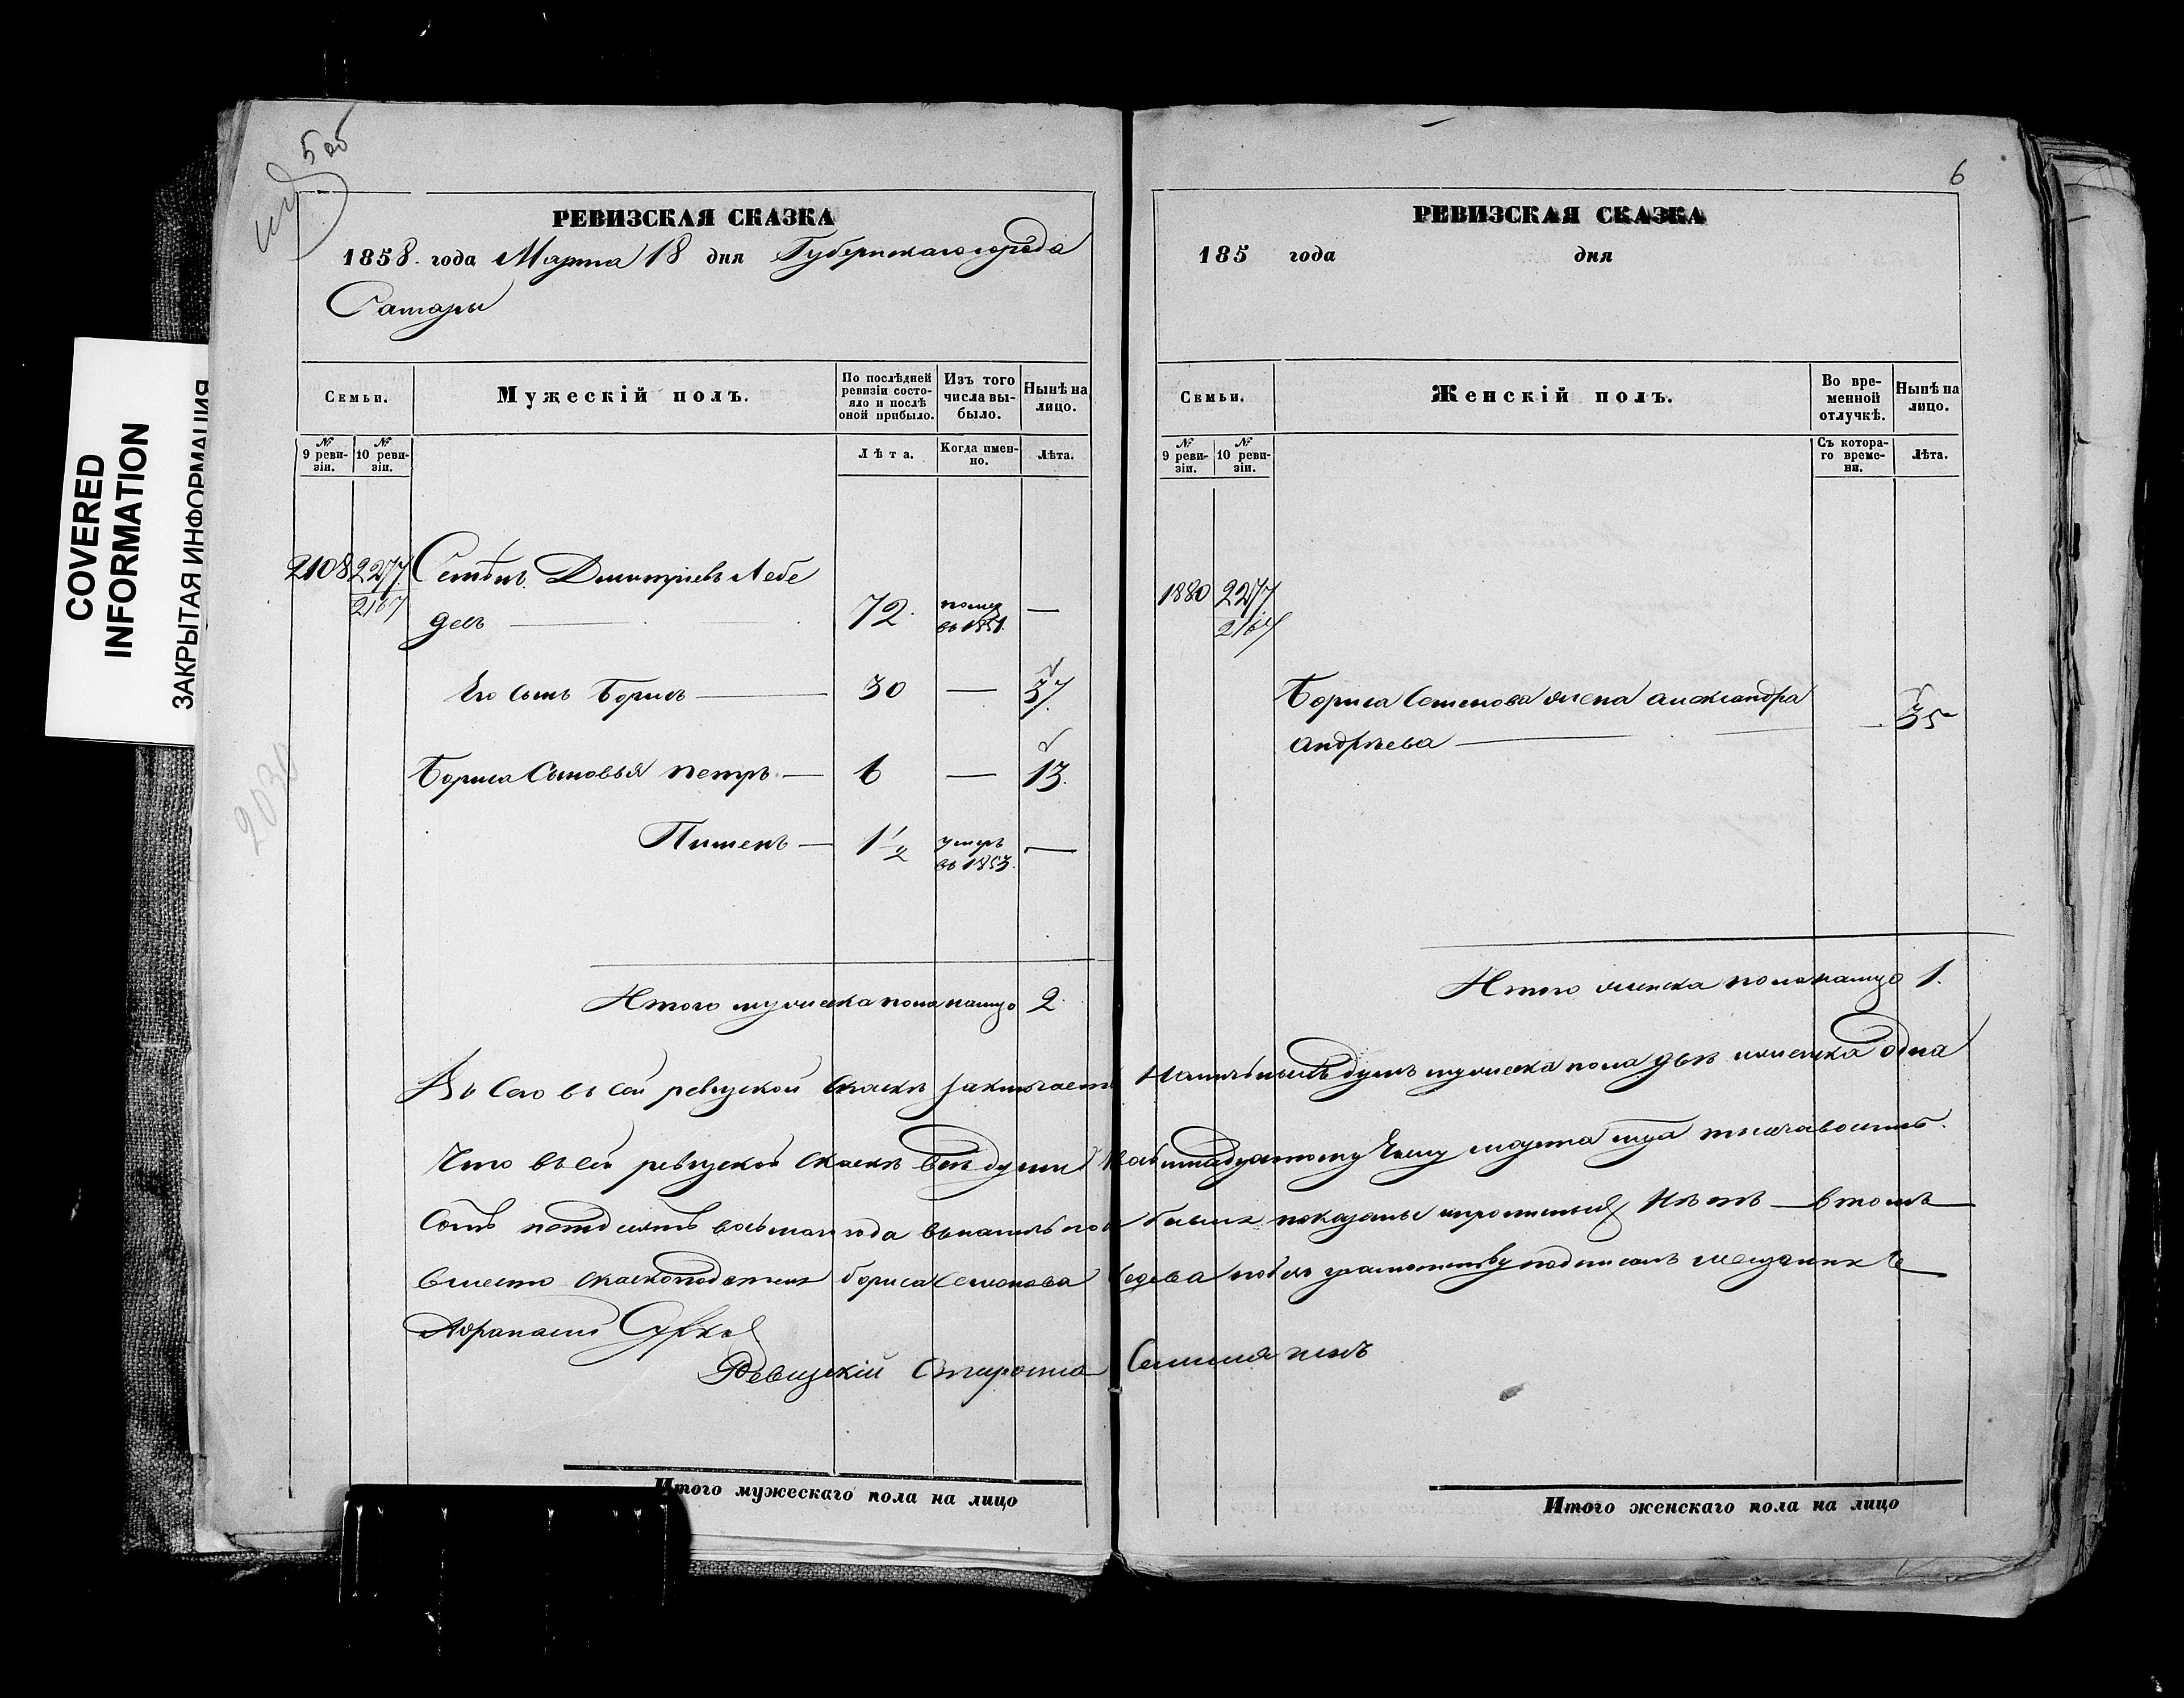 COVERED
INFORMATION
ЗАКРЫТАЯ ИНФОРМАЦИЯ
5 об
2030
РЕВИЗСКАЯ СКАЗКА
1858. года Марта 18 дня Губернскаго города
Самары
Семьи.
Мужескій полъ.
По послѣдней ревизіи состояло и послѣ оной прибыло.
Изъ того числа выбыло.
Нынѣ на лицо.
№ 9 ревизіи.
№ 10 ревизіи.
Лѣта.
Когда именно.
Лѣта.
2108 2277 Семенъ Дмитріевъ Лебе
2167 девъ — 72. помер въ 1851. —
Его сынъ Борисъ — 30 — 37.
Бориса Сыновья петръ — 6 — 13.
Пименъ — 1 1/2 умеръ въ 1853. —
Итого мужеска пола налицо 2.
6
РЕВИЗСКАЯ СКАЗКА
185 года дня
Семьи.
Женскій полъ.
Во временной отлучкѣ.
Нынѣ на лицо.
№ 9 ревизіи.
№ 10 ревизіи.
Съ котораго времени.
Лѣта.
1880 2277
2167
Бориса Семенова жена александра
андрѣева — — 35
Итого женска пола налицо 1.
Всего въ сей ревизской сказкѣ заключается наличныхъ душъ мужеска пола двѣ и женска одна
Что въ сей ревизской сказкѣ всѣ души марта тысяча восемь
Сотъ пятдесятъ восьмаго года показаны и прописныхъ нѣтъ — втомъ
вместо сказкоподателя бориса семенова подписалъ мещанинъ
Афранасий
Ревизскій Староста
Итого мужескаго пола на лицо
Итого женскаго пола на лицо